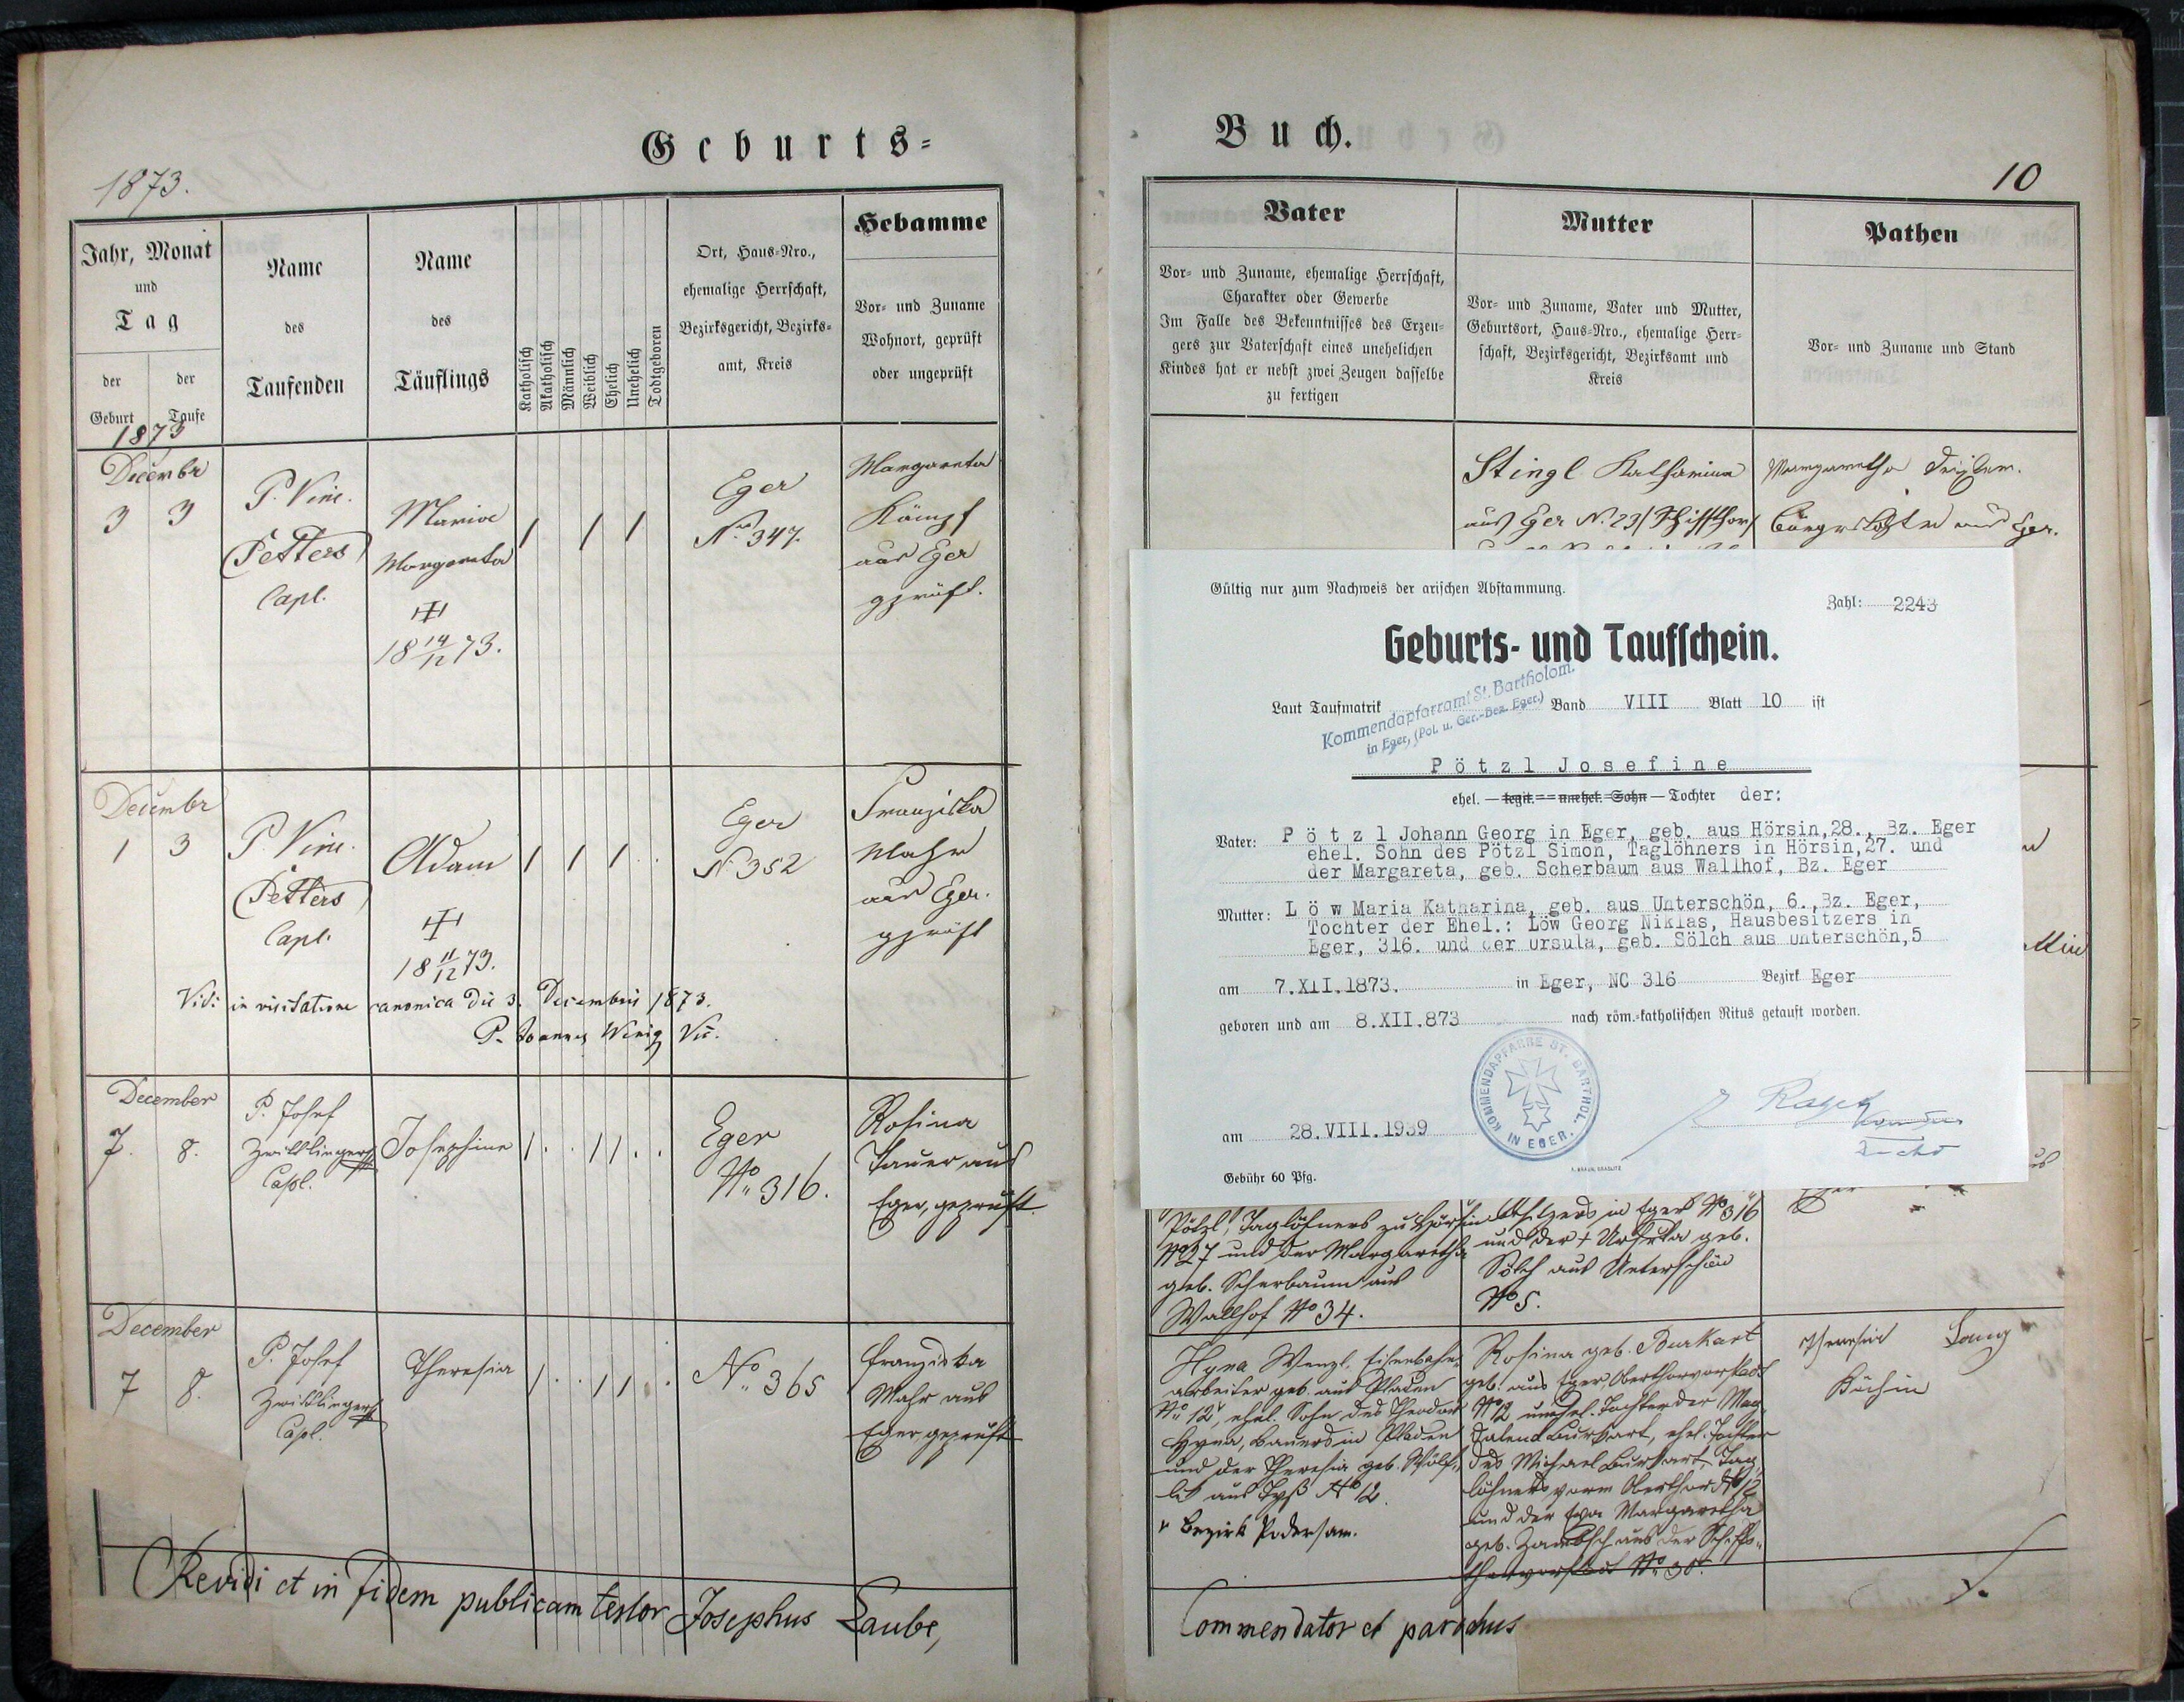 Geburts-
1873.
Jahr, Monat
und
Tag
der Geburt
der Taufe
1873
Name
des
Taufenden
Name
des
Täuflings
Katholisch
Akatholisch
Männlich
Weiblich
Ehelich
Unehelich
Todtgeboren
Ort, Haus-Nro.,
ehemalige Herrschaft,
Bezirksgericht, Bezirks-
amt, Kreis
Hebamme
Vor- und Zuname
Wohnort, geprüft
oder ungeprüft
Decembr
3 3
P. Vinc.
Petters
Capl.
Maria
Margareta
18 14/12 73.
Eger
No. 347.
Margareta
Kämpf
aus Eger
geprüft.
Decembr
1 3
P. Vinc.
Petters
Capl.
Adam
18 11/12 73.
Eger
No 352
Franziska
Mahr
aus Eger.
geprüft
Vidi in visitatione canonica die 3. Decembris 1873.
P. Joannes
December
7. 8.
P. Josef
Zwittlinger
Capl.
Josephine
Eger
No. 316.
Rosina
aus
Eger, geprüft.
December
7 8.
P. Josef
Zwittlinger
Capl.
Theresia
No. 365
Franziska
Mahr aus
Eger geprüft
Revidi et in fidem publicam testor Josephus Laube,
Buch.
10
Vater
Vor- und Zuname, ehemalige Herrschaft,
Charakter oder Gewerbe
Im Falle des Bekenntnisses des Erzeu-
gers zur Vaterschaft eines unehelichen
Kindes hat er nebst zwei Zeugen dasselbe
zu fertigen
Mutter
Vor- und Zuname, Vater und Mutter,
Geburtsort, Haus-Nro., ehemalige Herr-
schaft, Bezirksgericht, Bezirksamt und
Kreis
Pathen
Vor- und Zuname und Stand
Stingl Katharina
aus Eger N. 23
Margaretha
aus Eger.
Gültig nur zum Nachweis der arischen Abstammung.
Zahl: 2243
Geburts- und Taufschein.
Laut Taufmatrik Band VIII Blatt 10 ist
Kommendapfarramt St. Bartholom.
in Eger, (Pol. u. Ger.-Bez. Eger.)
Pötzl Josefine
ehel. — legit. — unehel. Sohn — Tochter der:
Vater: Pötzl Johann Georg in Eger, geb. aus Hörsin,28., Bz. Eger
ehel. Sohn des Pötzl Simon, Taglöhners in Hörsin,27. und
der Margareta, geb. Scherbaum aus Wallhof, Bz. Eger
Mutter: Löw Maria Katharina, geb. aus Unterschön, 6.,Bz. Eger,
Tochter der Ehel.: Löw Georg Niklas, Hausbesitzers in
Eger, 316. und der Ursula, geb. Sölch aus Unterschön,5
am 7.XII.1873. in Eger, NC 316 Bezirk Eger
geboren und am 8.XII.873 nach röm.-katholischen Ritus getauft worden.
KOMMENDAPFARRE ST. BARTHOL. IN EGER.
am 28.VIII.1939
Gebühr 60 Pfg.
Pötzl, Taglöhners zu Hörsin
No 27 und der Margaretha
geb. Scherbaum aus
Wallhof No 34.
in Eger No 316
und der † Ursula geb.
Sölch aus Unterschön
No 5.
Hyna Wenzl, Eisenbahn-
arbeiter geb. aus Pladen
No. 12, ehel. Sohn des Theodor
Hyna, Bauers in Pladen
und der Theresia geb. Wölf-
No 12.
Bezirk Podersam.
Rosina geb. Burkart
geb. aus Eger, Oberthorvorstadt
No 12 unehel. Tochter der Mag-
dalena Burkart, ehel. Tochter
des Michael Burkart, Tag-
löhners vorm Oberthor No 12
und der Eva Margaretha
geb. aus der Schiff-
thorvorstadt No. 38.
Theresia Lang
Köchin
Commendator et parochus